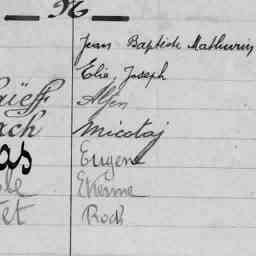 N
Jean Baptiste Mathurin
Elie, Joseph
aïeff Alfin
ach Micolaj
as Eugène
le Etienne
et Rodi